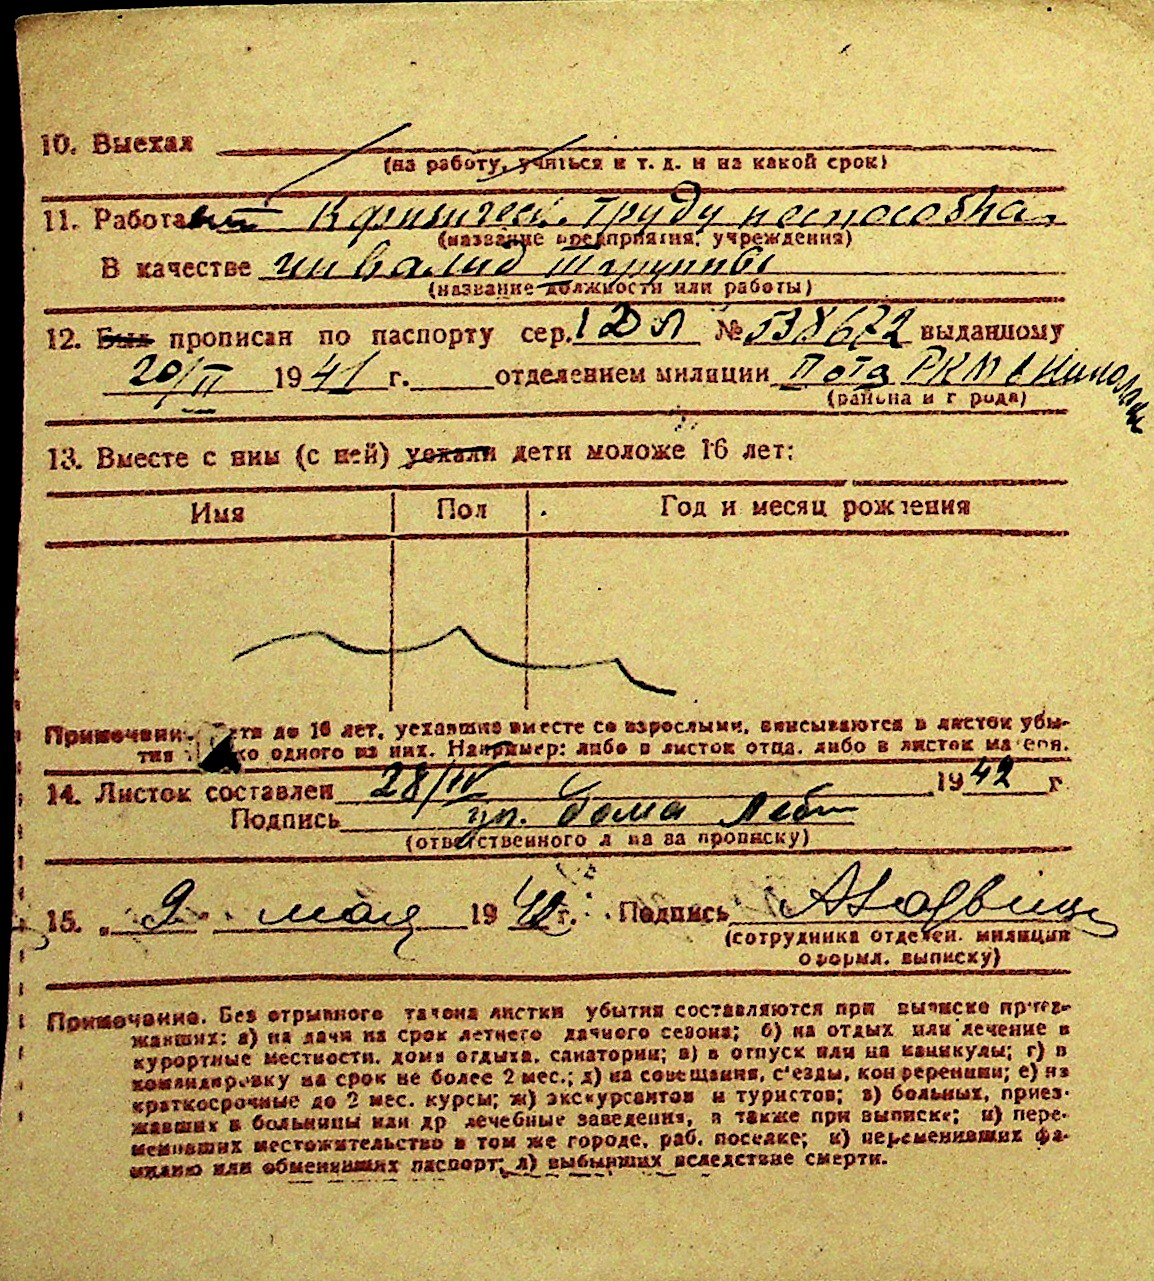 10. Выехал
(на работу, учиться и т. д. и на какой срок)
11. Работает К физическ. труду неспособна,
(название предприятия, учреждения)
В качестве инвалид III группы
(название должности или работы)
12. Был прописан по паспорту сер. I ДЛ № 538672 выданному
20/II 1941 г. отделением милиции РКМ г
(района и города)
13. Вместе с ним (с ней) уехали дети моложе 16 лет:
Имя Пол Год и месяц рождения
Примечание. Дети до 16 лет, уехавшие вместе со взрослыми, вписываются в листок убы-
тия только одного из них. Например: либо в листок отца, либо в листок матери.
14. Листок составлен 28/IV 1942 г
Подпись уп. дома
(ответственного лица за прописку)
15. „ 9 " мая 1942 г. Подпись
(сотрудника отделен. милиции
оформл. выписку)
Примечание. Без отрывного талона листки убытия составляются при выписке приез-
жавших: а) на дачи на срок летнего дачного сезона; б) на отдых или лечение в
курортные местности, дома отдыха, санатории; в) в отпуск или на каникулы; г) в
командировку на срок не более 2 мес.; д) на совещания, с'езды, конференции; е) на
краткосрочные до 2 мес. курсы; ж) экскурсантов и туристов; з) больных, приез-
жавших в больницы или др лечебные заведения, а также при выписке; и) пере-
менивших местожительство в том же городе, раб. поселке; к) переменивших фа-
милию или обменявших паспорт; л) выбывших вследствие смерти.